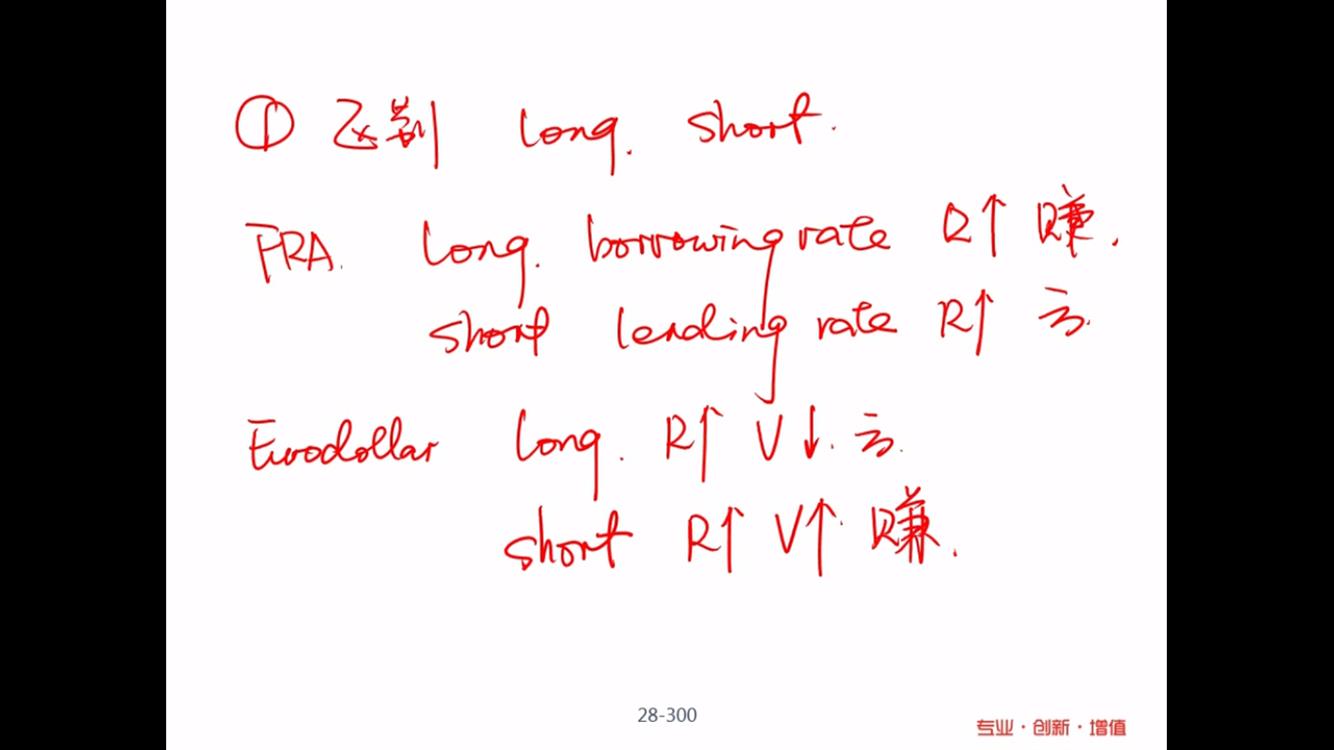 ① 区别 long. short.
FRA. long. borrowing rate R↑ 赚.
short lending rate R↑ 亏.
Eurodollar long. R↑ V↓. 亏.
short R↑ V↑. 赚.
28-300
专业·创新·增值